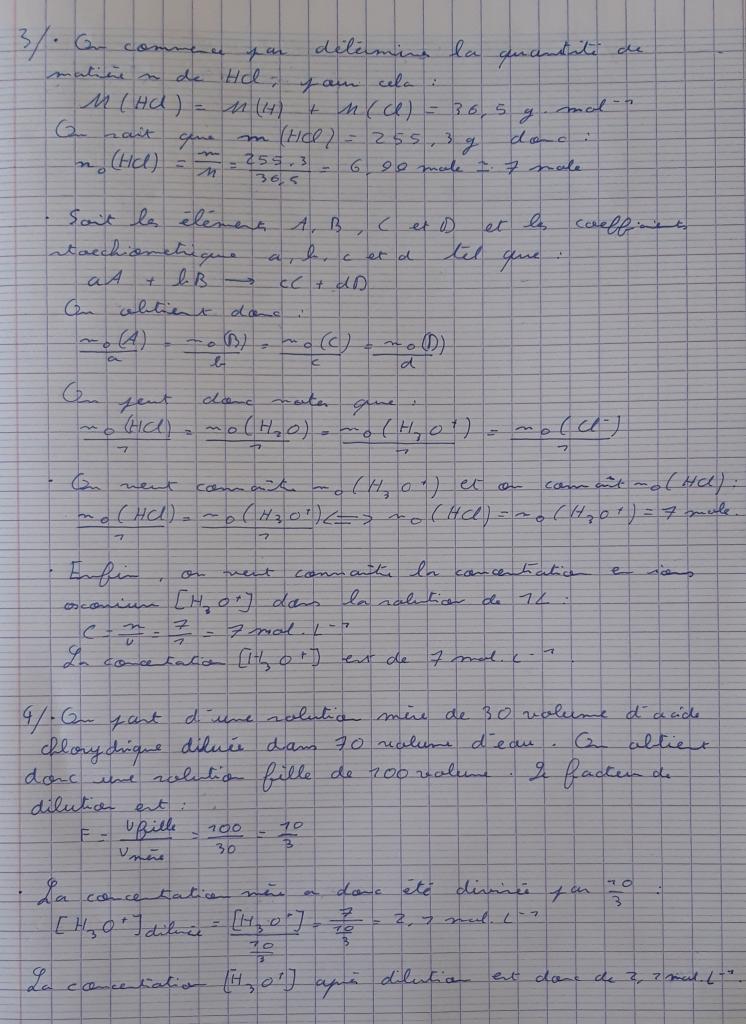 3/. On commence par détermine la quantité de
matière n de HCl, pour cela :
M(HCl) = M(H) + M(Cl) = 36,5 g.mol⁻¹
On sait que m(HCl) = 255,3g donc :
n₀(HCl) = m/M = 255,3/36,5 = 6,99 mole ≃ 7 mole
. Soit les élément A, B, C et D et les coefficients
stoechiometrique a, b, c et d tel que :
aA + bB → cC + dD
On obtient donc :
n₀(A)/a = n₀(B)/b = n₀(C)/c = n₀(D)/d
On peut donc noter que :
n₀(HCl)/1 = n₀(H₂O)/1 = n₀(H₃O⁺)/1 = n₀(Cl⁻)/1
. On veut connaître n₀(H₃O⁺) et on connaît n₀(HCl) :
n₀(HCl)/1 = n₀(H₃O⁺)/1 <=> n₀(HCl) = n₀(H₃O⁺) = 7 mole.
. Enfin, on veut connaître la concentration e ions
oxonium [H₃O⁺] dans la solution de 1L :
C = n/v = 7/1 = 7 mol.L⁻¹
La concentation [H₃O⁺] est de 7 mol.L⁻¹.
4/. On part d'une solution mère de 30 volume d'acide
chlorydrique diluée dans 70 volume d'eau. On obtient
donc une solution fille de 100 volume. Le facteur de
dilution est :
F = Vfille/Vmère = 100/30 = 10/3
. La concentration mère a donc été divisée par 10/3 :
[H₃O⁺]diluée = [H₃O⁺]/(10/3) = 7/(10/3) = 2,1 mol.L⁻¹
La concentration [H₃O⁺] après dilution est donc de 2,1 mol.L⁻¹.